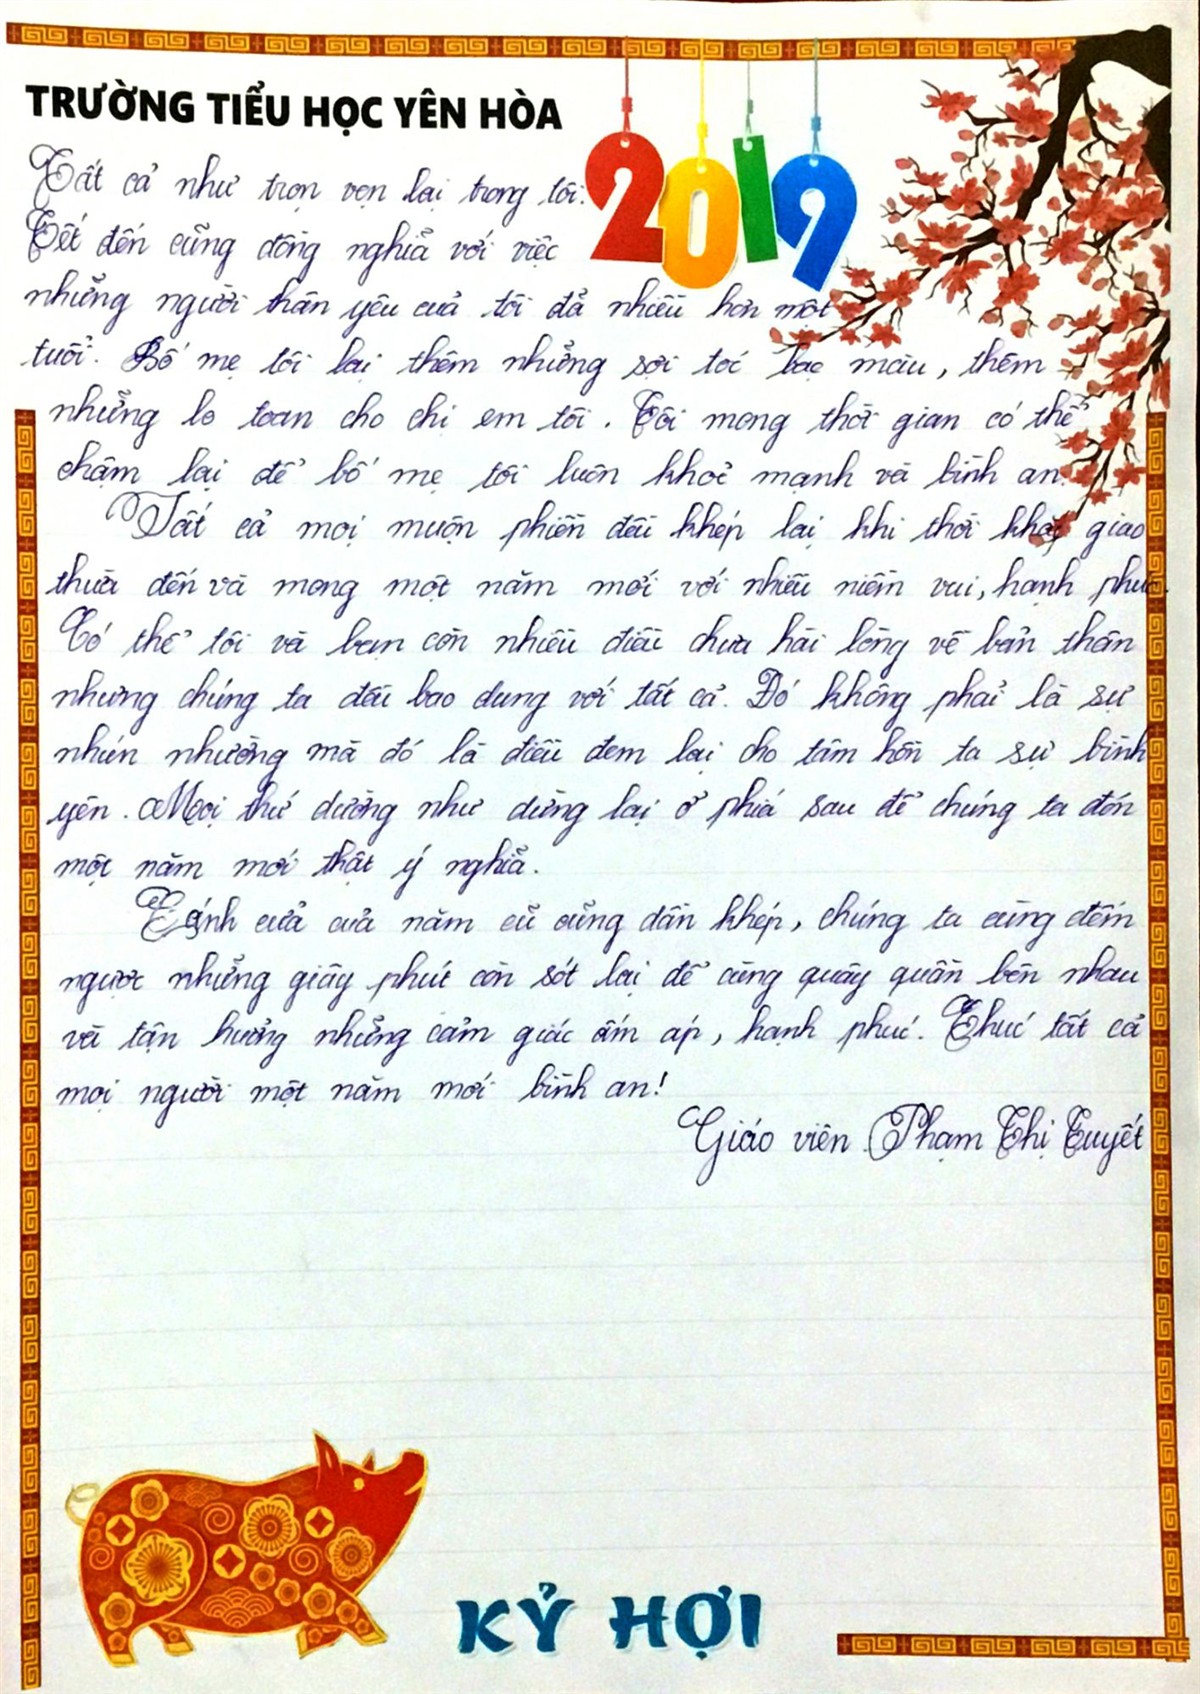 TRƯỜNG TIỂU HỌC YÊN HÒA
2019
Tất cả như trọn vẹn lại trong tôi.
Tết đến cũng đồng nghĩa với việc
những người thân yêu của tôi đã nhiều hơn một
tuổi. Bố mẹ tôi lại thêm những sợi tóc bạc màu, thêm
những lo toan cho chị em tôi. Tôi mong thời gian có thể
chậm lại để bố mẹ tôi luôn khoẻ mạnh và bình an.
Tất cả mọi muộn phiền đều khép lại khi thời khắc giao
thừa đến và mong một năm mới với nhiều niềm vui, hạnh phúc.
Có thể tôi và bạn còn nhiều điều chưa hài lòng về bản thân
nhưng chúng ta đều bao dung với tất cả. Đó không phải là sự
nhún nhường mà đó là điều đem lại cho tâm hồn ta sự bình
yên. Mọi thứ dường như dừng lại ở phía sau để chúng ta đón
một năm mới thật ý nghĩa.
Cánh cửa của năm cũ cũng dần khép, chúng ta cùng đếm
ngược những giây phút còn sót lại để cùng quây quần bên nhau
và tận hưởng những cảm giác ấm áp, hạnh phúc. Chúc tất cả
mọi người một năm mới bình an!
Giáo viên Phạm Thị Tuyết
KỶ HỢI